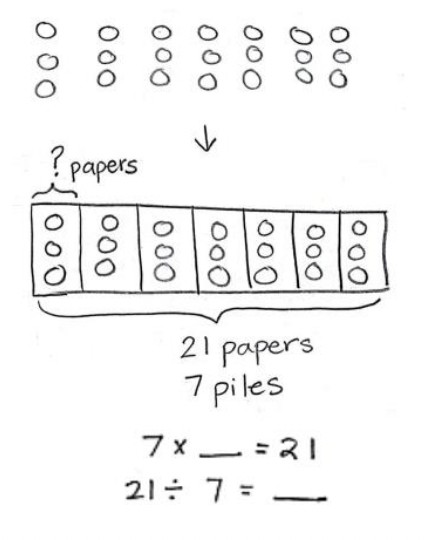 ? papers
21 papers
7 piles
7 × __ = 21
21 ÷ 7 = __